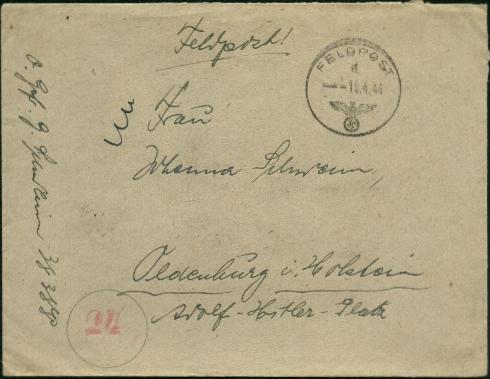 Feldpost!
FELDPOST
d
16.4.44
Frau
Johanna Schwein,
Oldenburg i. Holstein
Adolf-Hitler-Platz
24
O. Gefr. G.